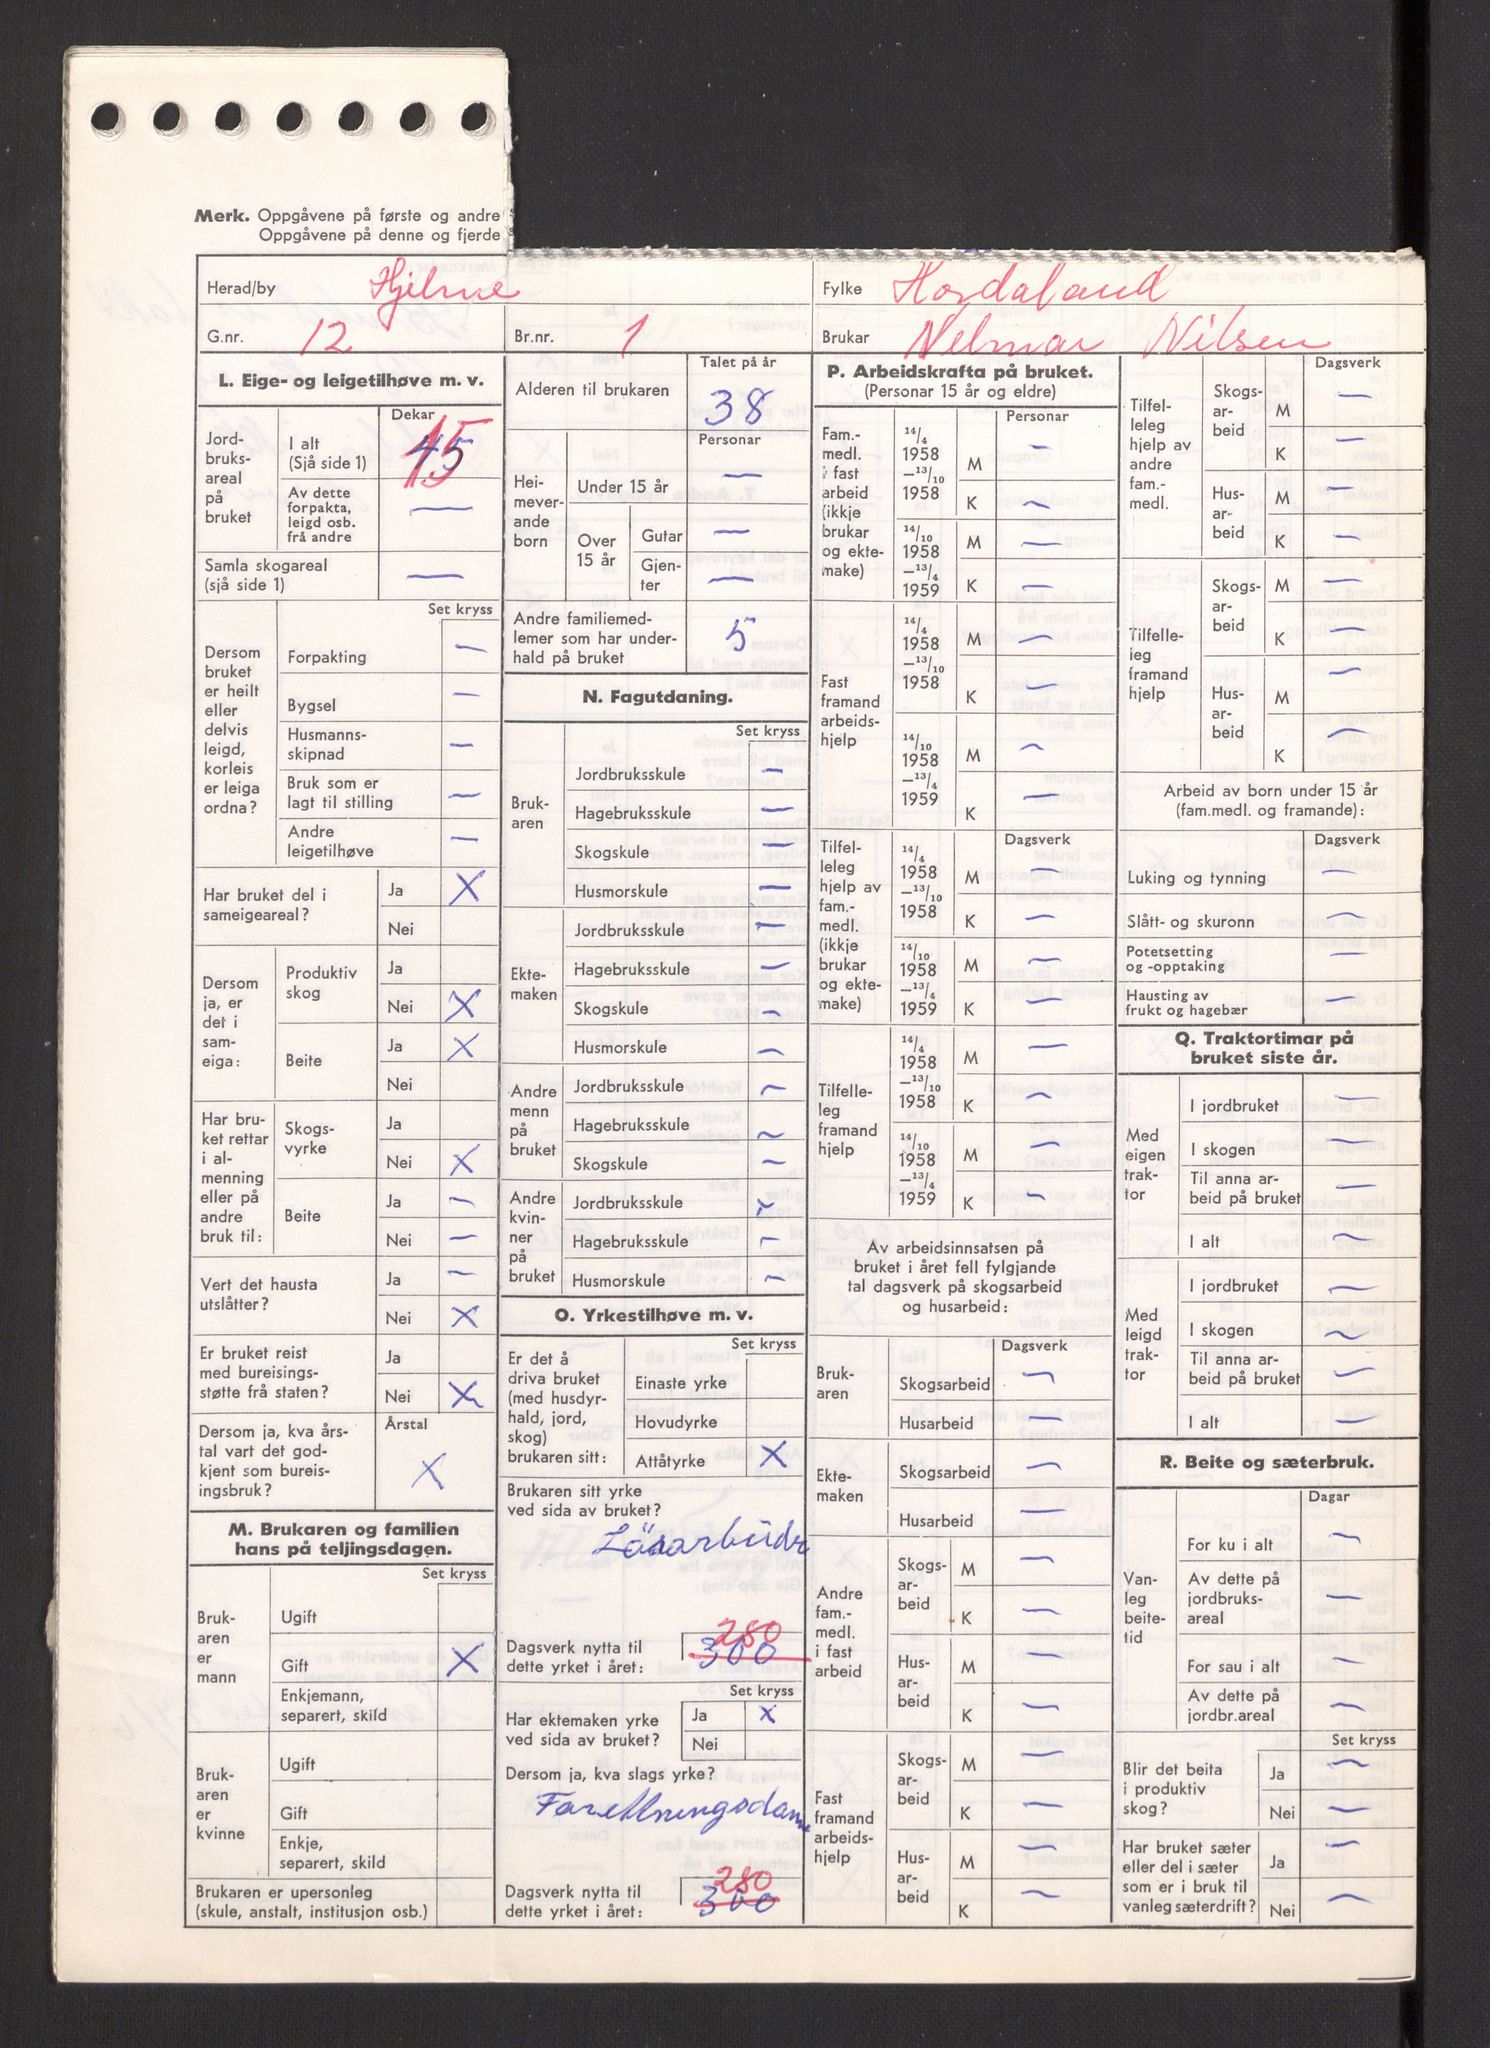 Merk. Oppgåvene på første og andre
Oppgåvene på denne og fjerde
Herad/by Hjelme
Fylke Hordaland
G.nr. 12 Br.nr. 1
Brukar Nelmar Nilsen
L. Eige- og leigetilhøve m. v.
Dekar
Jord-
bruks-
areal
på
bruket
I alt
(Sjå side 1)
15
Av dette
forpakta,
leigd osb.
frå andre
—
Samla skogareal
(sjå side 1)
—
Set kryss
Dersom
bruket
er heilt
eller
delvis
leigd,
korleis
er leiga
ordna?
Forpakting —
Bygsel —
Husmanns-
skipnad —
Bruk som er
lagt til stilling —
Andre
leigetilhøve —
Har bruket del i
sameigeareal?
Ja X
Nei
Dersom
ja, er
det i
sam-
eiga:
Produktiv
skog
Ja
Nei X
Beite
Ja X
Nei
Har bru-
ket rettar
i al-
menning
eller på
andre
bruk til:
Skogs-
vyrke
Ja
Nei X
Beite
Ja —
Nei —
Vert det hausta
utslåtter?
Ja —
Nei X
Er bruket reist
med bureisings-
støtte frå staten?
Ja
Nei X
Dersom ja, kva års-
tal vart det god-
kjent som bureis-
ingsbruk?
Årstal
X
M. Brukaren og familien
hans på teljingsdagen.
Set kryss
Bruk-
aren
er
mann
Ugift
Gift X
Enkjemann,
separert, skild
Bruk-
aren
er
kvinne
Ugift
Gift
Enkje,
separert, skild
Brukaren er upersonleg
(skule, anstalt, institusjon osb.)
Talet på år
Alderen til brukaren 38
Personar
Hei-
mever-
ande
born
Under 15 år —
Over
15 år
Gutar —
Gjen-
ter —
Andre familiemed-
lemer som har under-
hald på bruket
5
N. Fagutdaning.
Set kryss
Bruk-
aren
Jordbruksskule —
Hagebruksskule —
Skogskule —
Husmorskule —
Ekte-
maken
Jordbruksskule —
Hagebruksskule —
Skogskule —
Husmorskule —
Andre
menn
på
bruket
Jordbruksskule —
Hagebruksskule —
Skogskule —
Andre
kvin-
ner
på
bruket
Jordbruksskule —
Hagebruksskule —
Husmorskule —
O. Yrkestilhøve m. v.
Set kryss
Er det å
driva bruket
(med husdyr-
hald, jord,
skog)
brukaren sitt:
Einaste yrke
Hovudyrke
Attåtyrke X
Brukaren sitt yrke
ved sida av bruket?
Lösarbeidr
Dagsverk nytta til
dette yrket i året:
280
300
Set kryss
Har ektemaken yrke
ved sida av bruket?
Ja X
Nei
Dersom ja, kva slags yrke?
Forettningsdame
Dagsverk nytta til
dette yrket i året:
280
300
P. Arbeidskrafta på bruket.
(Personar 15 år og eldre)
Personar
Fam.-
medl.
i fast
arbeid
(ikkje
brukar
og ekte-
make)
14/4
1958
—13/10
1958
M —
K —
14/10
1958
—13/4
1959
M —
K —
Fast
framand
arbeids-
hjelp
14/4
1958
—13/10
1958
M —
K —
14/10
1958
—13/4
1959
M —
K —
Dagsverk
Tilfel-
leleg
hjelp av
fam.-
medl.
(ikkje
brukar
og ekte-
make)
14/4
1958
—13/10
1958
M —
K —
14/10
1958
—13/4
1959
M —
K —
Tilfelle-
leg
framand
hjelp
14/4
1958
—13/10
1958
M —
K —
14/10
1958
—13/4
1959
M —
K —
Av arbeidsinnsatsen på
bruket i året fell fylgjande
tal dagsverk på skogsarbeid
og husarbeid:
Dagsverk
Bruk-
aren
Skogsarbeid —
Husarbeid —
Ekte-
maken
Skogsarbeid —
Husarbeid —
Andre
fam.-
medl.
i fast
arbeid
Skogs-
ar-
beid
M —
K —
Hus-
ar-
beid
M —
K —
Fast
framand
arbeids-
hjelp
Skogs-
ar-
beid
M —
K —
Hus-
ar-
beid
M —
K —
Dagsverk
Tilfel-
leleg
hjelp av
andre
fam.-
medl.
Skogs-
ar-
beid
M —
K —
Hus-
ar-
beid
M —
K —
Tilfelle-
leg
framand
hjelp
Skogs-
ar-
beid
M —
K —
Hus-
ar-
beid
M —
K —
Arbeid av born under 15 år
(fam.medl. og framande):
Dagsverk
Luking og tynning —
Slått- og skuronn —
Potetsetting
og -opptaking —
Hausting av
frukt og hagebær —
Q. Traktortimar på
bruket siste år.
Med
eigen
trak-
tor
I jordbruket —
I skogen —
Til anna ar-
beid på bruket —
I alt —
Med
leigd
trak-
tor
I jordbruket —
I skogen —
Til anna ar-
beid på bruket —
I alt —
R. Beite og sæterbruk.
Dagar
Van-
leg
beite-
tid
For ku i alt —
Av dette på
jordbruks-
areal —
For sau i alt —
Av dette på
jordbr.areal —
Set kryss
Blir det beita
i produktiv
skog?
Ja —
Nei —
Har bruket sæter
eller del i sæter
som er i bruk til
vanleg sæterdrift?
Ja —
Nei —